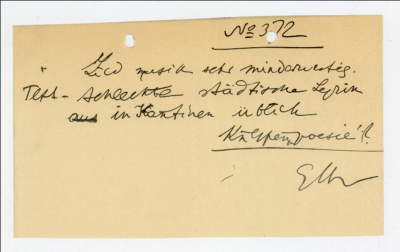 No 372
Lied musik sehr minderwertig.
Text - schlechte städtische Lyrik
aus in Kantinen üblich